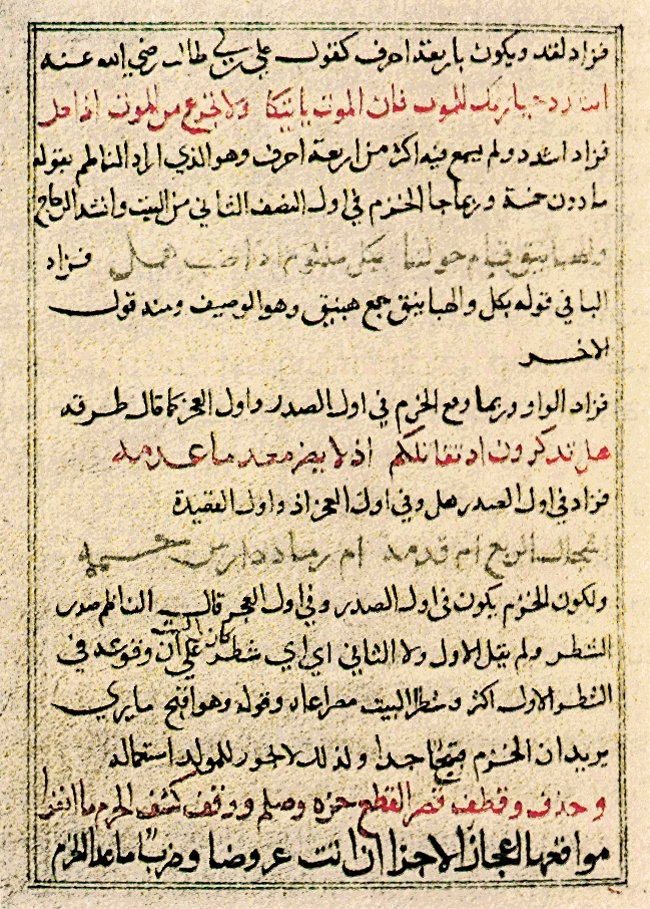 فزاد لقد ويكون باربعة احرف كقول علي بن ابي طالب رضي الله عنه
اشدد حيازيمك للموت فان الموت ياتيكا ولا تجزع من الموت اذا حل
فزاد اشدد ولم يسمع فيه اكثر من اربعة احرف وهو الذي اراد الناظم بقوله
ما دون خمسة وربما جا الخزم في اول النصف الثاني من البيت وانشد الزجاج
والهبانيق قيام حولنا بكل ملثوم اذا صب همل فزاد
البا في قوله بكل والهبانيق جمع هبنيق وهو الوصيف ومنه قول
الاخر
فزاد الواو وربما وقع الخزم في اول الصدر واول العجز كما قال طرفه
هل تذكرون اذ نقاتلكم اذ لا يضر معدما عدمه
فزاد في اول الصدر هل وفي اول العجز اذ واول القصيدة
الربع ام قدمه ام رماد دارس حممه
ولكون الخزم يكون في اول الصدر وفي اول العجز قال الناظم صدر
الشطر ولم يقل الاول ولا الثاني اي اي شطر كان على ان وقوعه في
الشطر الاول اكثر وشطرا البيت مصراعاه وقوله وهو اقبح ما يري
يريد ان الخزم قبيح جدا ولذلك لا يجوز للمولد استعماله
وحذف وقطف قصر القطع حذه وصلم ووقف كشف الخرم ما انفرا
مواقعها اعجاز الاجزا ان اتت عروضا وضربا ما عدا الخرم